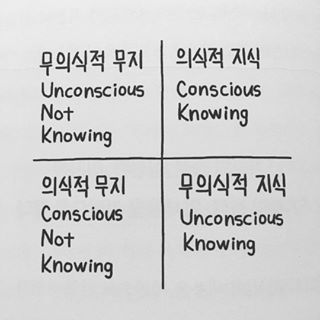 무의식적 무지
Unconscious
Not
Knowing
의식적 지식
Conscious
Knowing
의식적 무지
Conscious
Not
Knowing
무의식적 지식
Unconscious
Knowing